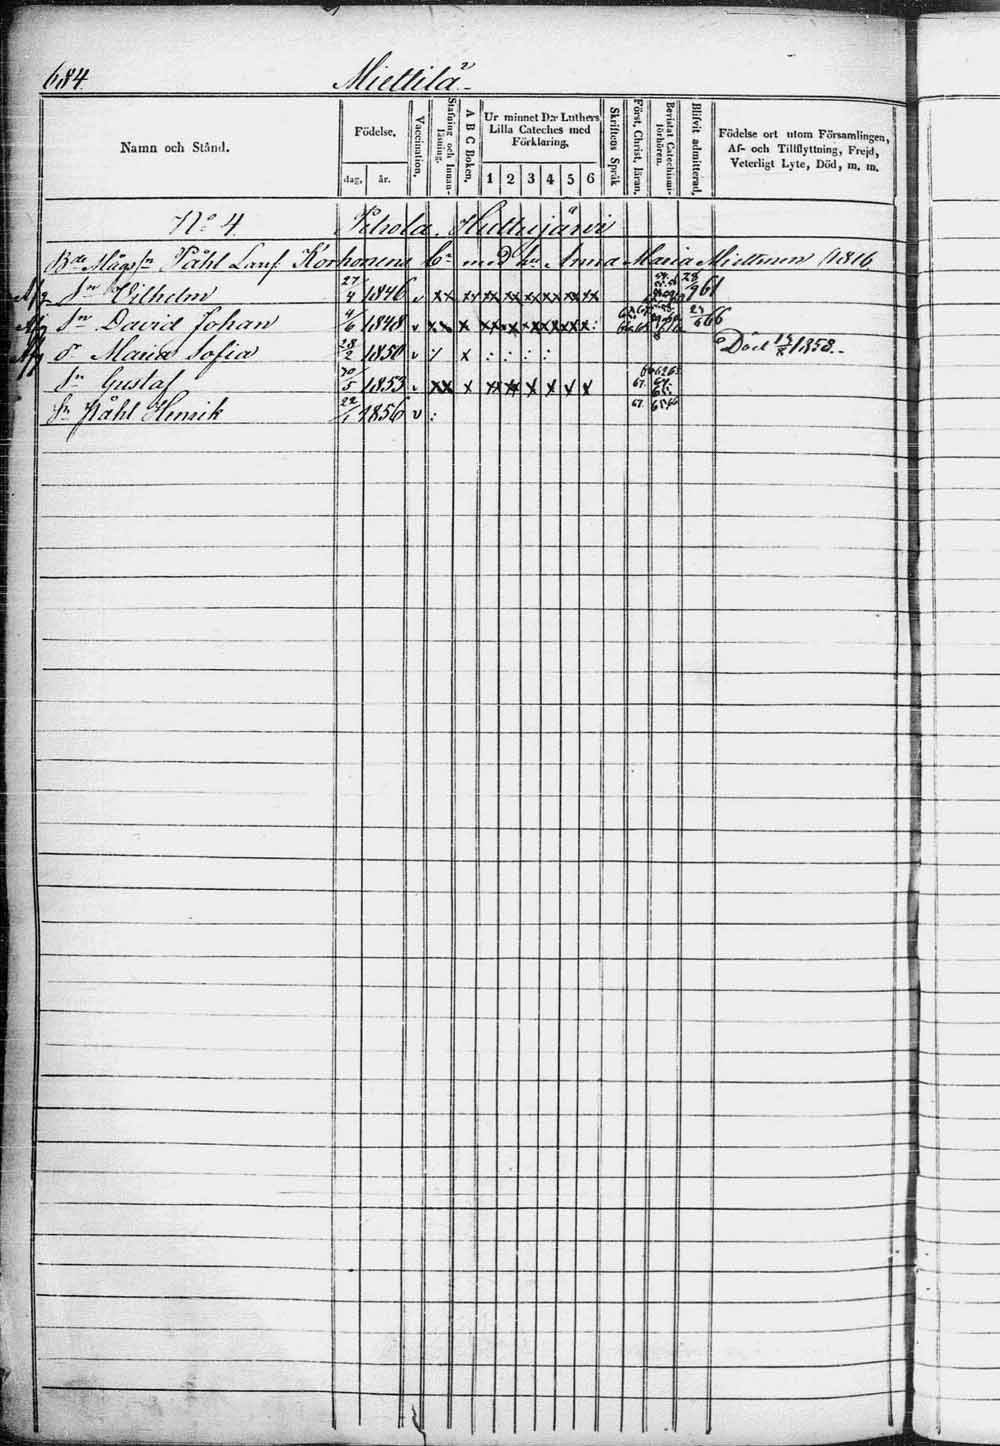 684.
Miettilä
Namn och Stånd.
Födelse,
dag, år.
Vaccination,
Stafning och Innan-läsning.
A B C Boken,
Ur minnet D:r Luthers Lilla Cateches med Förklaring,
1 2 3 4 5 6
Skriftens Språk
Först, Christ, läran,
Bevistat Catechismi-förhören.
Blifvit admitterad,
Födelse ort utom Församlingen,
Af- och Tillflyttning, Frejd,
Veterligt Lyte, Död, m. m.
No 4. Hietajärvi
Påhl Korhonens med hu Anna Maria Miettinen 1816
Sn Vilhelm 27/4 1846 v xx xx xx xx xx xx xx xx 61
Sn David Johan 4/6 1848 v xx x 66
dr Maria Sofia 28/2 1850 v x : : : : Död 1858.
Sn Gustaf 1853 v xx x xx xx x x x x 67.
Sn Påhl Henrik 22/1 1856 v : 67